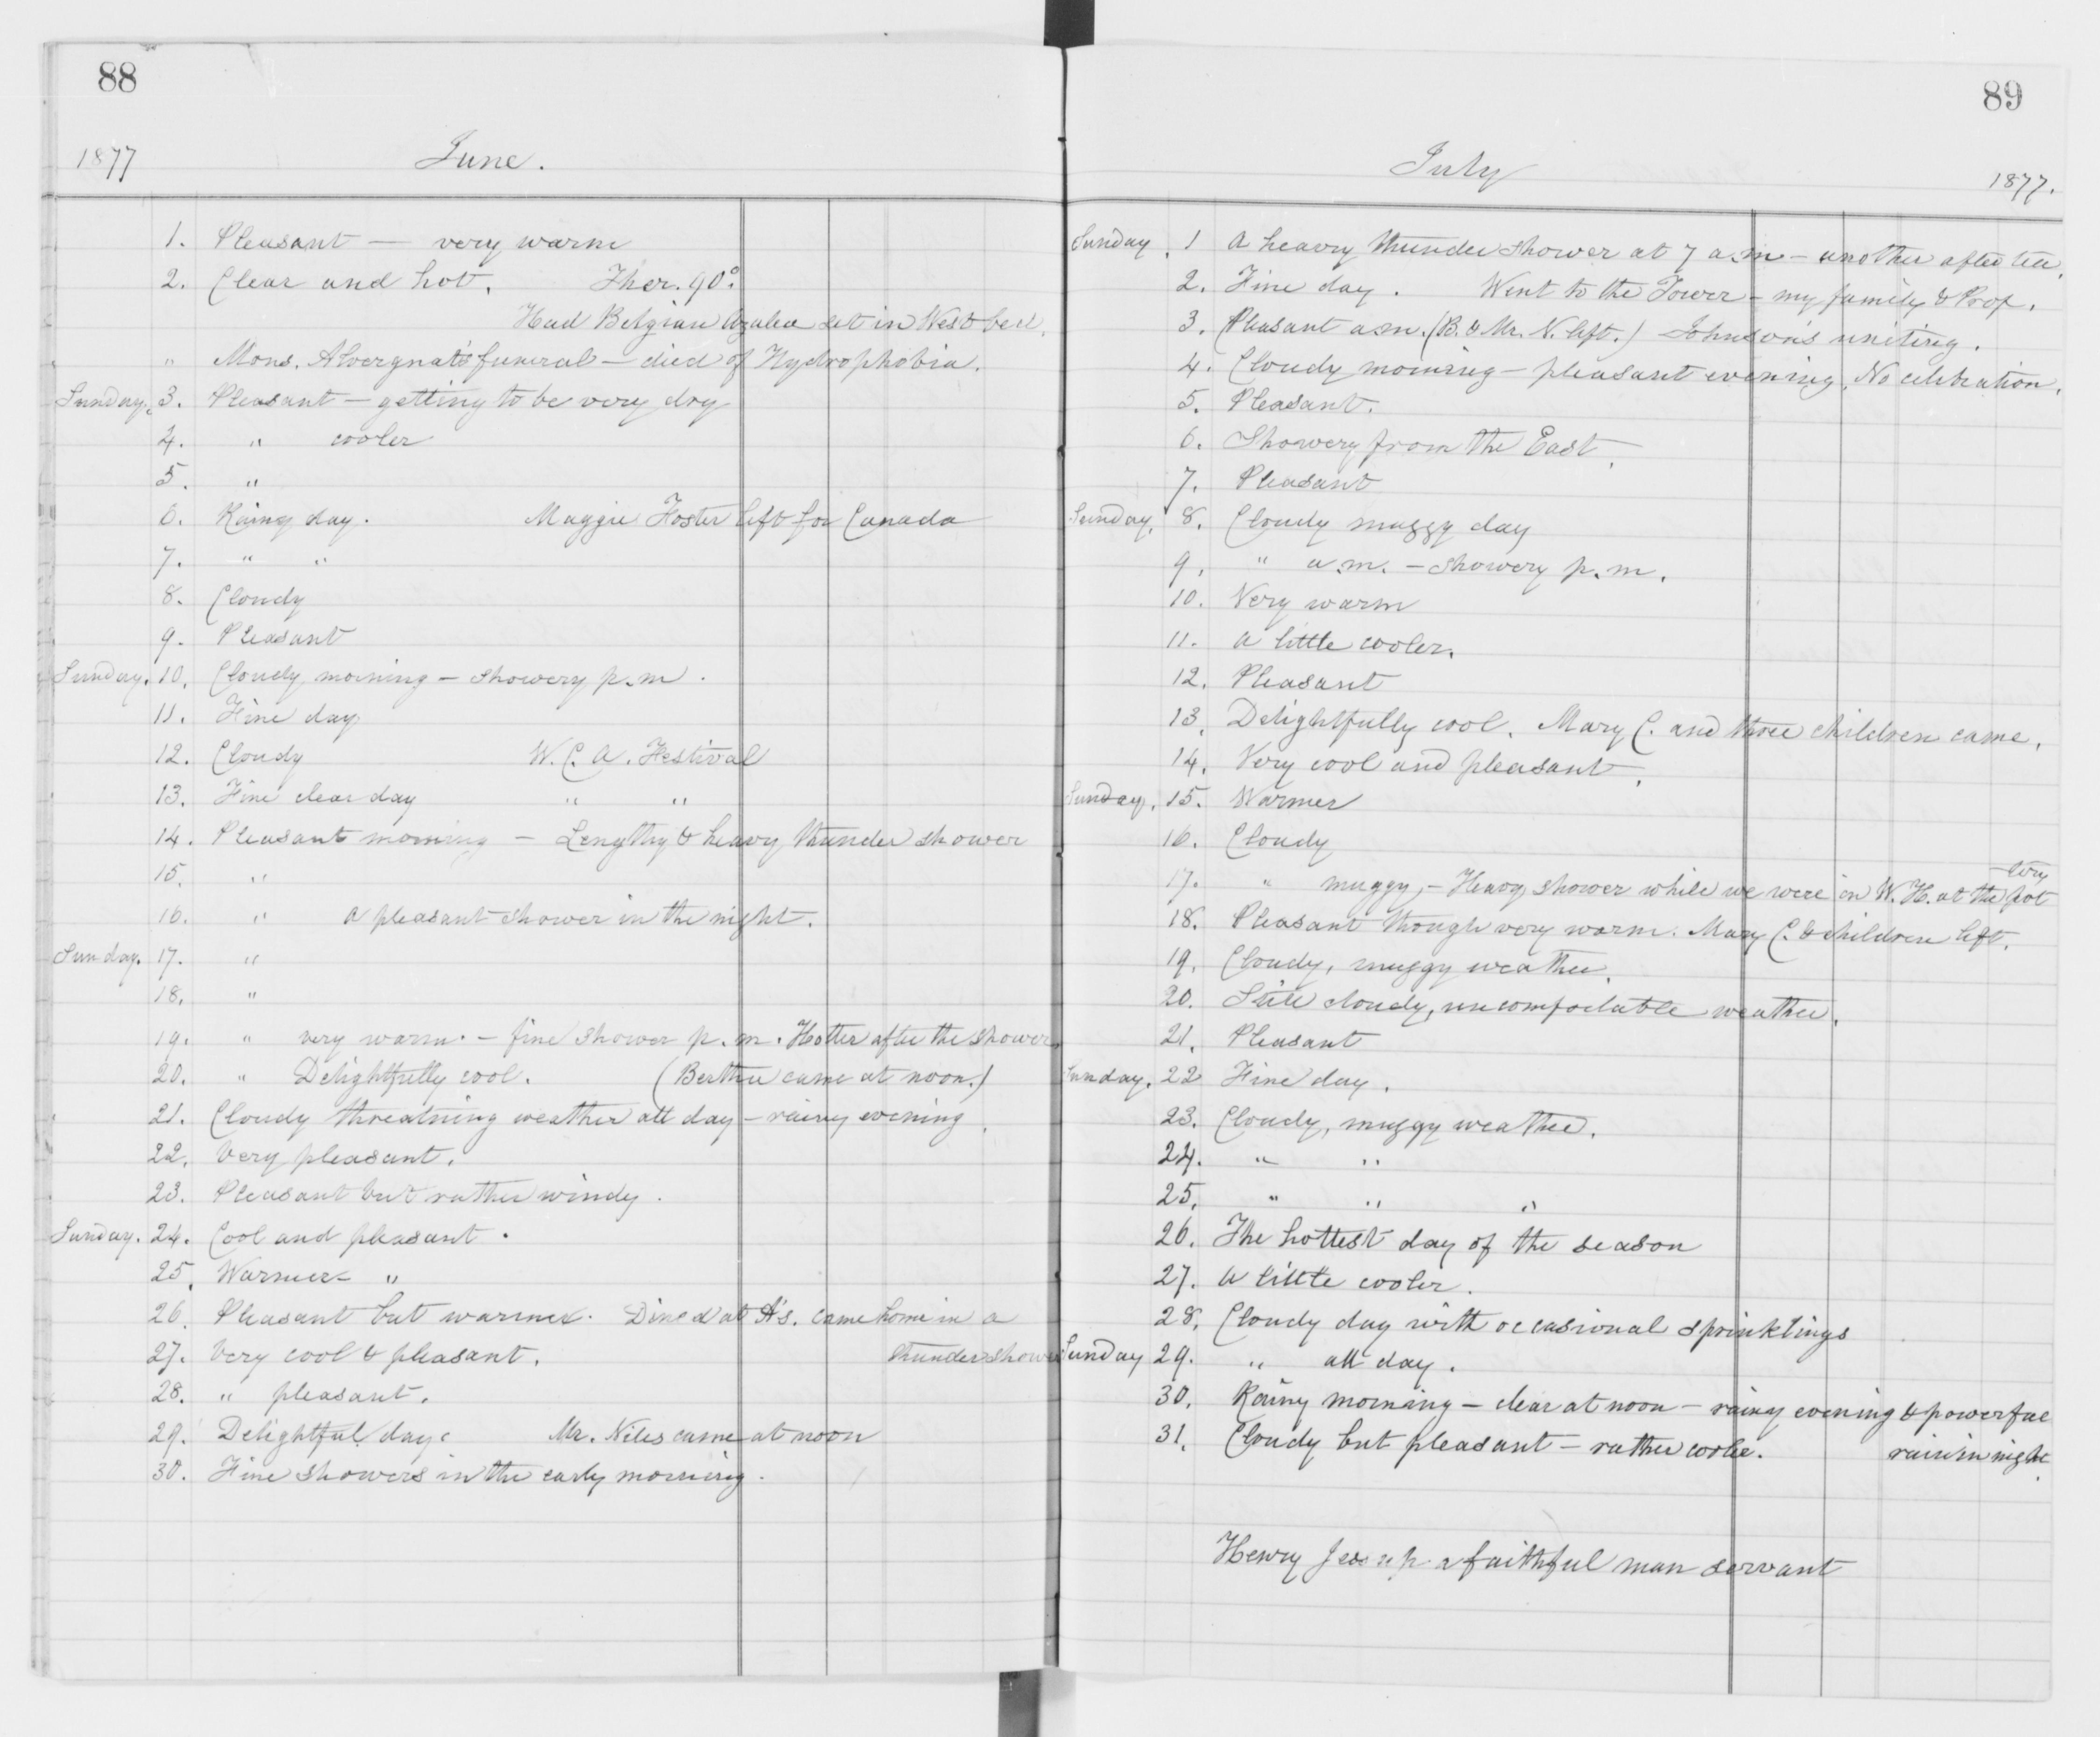 88
1877 June.
1. Pleasant — very warm
2. Clear and hot. Ther. 90°.
Had Belgian Azalea set in West bed.
" Mons. Alvergnat's funeral — died of Hydrophobia.
Sunday. 3. Pleasant — getting to be very dry
4. " cooler
5. "
6. Rainy day. Maggie Foster left for Canada
7. " "
8. Cloudy
9. Pleasant
Sunday. 10. Cloudy morning — showery p.m.
11. Fine day
12. Cloudy W. C. A. Festival
13. Fine clear day " "
14. Pleasant morning — Lengthy & heavy thunder shower
15. "
16. " A pleasant shower in the night.
Sunday. 17. "
18. "
19. " very warm. — fine shower p.m. Hotter after the shower
20. " Delightfully cool. (Bertha came at noon.)
21. Cloudy threatning weather all day — rainy evening.
22. Very pleasant.
23. Pleasant but rather windy.
Sunday. 24. Cool and pleasant.
25. Warmer "
26. Pleasant but warmer. Dined at A's. came home in a
27. Very cool & pleasant. thunder shower
28. " pleasant.
29. Delightful day. Mr. Niles came at noon
30. Fine showers in the early morning.
89
July 1877.
Sunday. 1 A heavy thunder shower at 7 a.m — another after tea.
2. Fine day. Went to the Tower — my family & Prof.
3. Pleasant a.m. (B. & Mr. N. left.) Johnson's uniting.
4. Cloudy morning — pleasant evening. No celebration.
5. Pleasant.
6. Showery from the East.
7. Pleasant
Sunday. 8. Cloudy muggy day
9. " a.m. — showery p.m.
10. Very warm
11. A little cooler.
12. Pleasant
13. Delightfully cool. Mary C. and three children came.
14. Very cool and pleasant.
Sunday. 15. Warmer
16. Cloudy
17. " muggy, — Heavy shower while we were in W. H. at the
18. Pleasant though very warm. Mary C. & children left.
19. Cloudy, muggy weather.
20. Still cloudy, uncomfortable weather.
21. Pleasant
Sunday. 22 Fine day.
23. Cloudy, muggy weather.
24. " "
25. " " "
26. The hottest day of the season
27. A little cooler.
28. Cloudy day with occasional sprinklings
Sunday 29. " all day.
30. Rainy morning — clear at noon — rainy evening & powerful
31. Cloudy but pleasant — rather cooler. rain in night.
Henry Jessup a faithful man servant